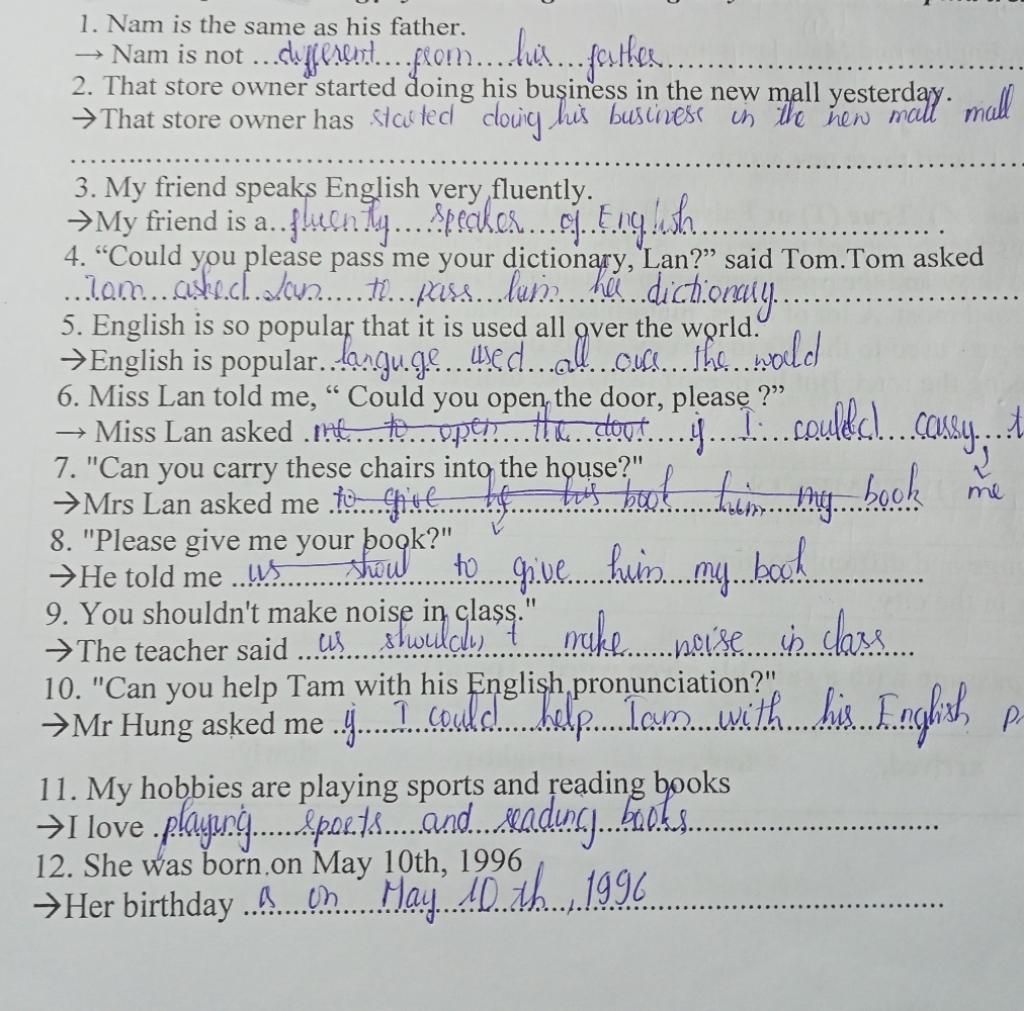 1. Nam is the same as his father.
→ Nam is not ...different....from....his...father..............................
2. That store owner started doing his business in the new mall yesterday.
→That store owner has started doing his business in the new mall mall
..........................................................................................
3. My friend speaks English very fluently.
→My friend is a..fluently....speaker...of English.............................
4. “Could you please pass me your dictionary, Lan?” said Tom.Tom asked
...Tam...asked Lan.....to...pass...him...her dictionary..............................
5. English is so popular that it is used all over the world.
→English is popular..languge...used...all...over...the...world
6. Miss Lan told me, “ Could you open the door, please ?”
→ Miss Lan asked .me...to...open...the...door....if...I...could....carry...t
7. "Can you carry these chairs into the house?"
→Mrs Lan asked me .to give his book him my book me
8. "Please give me your book?"
→He told me ..us shoul to give him my book..............
9. You shouldn't make noise in class."
→The teacher said ...us shouldn't make noise in class...
10. "Can you help Tam with his English pronunciation?"
→Mr Hung asked me ..if...I could...help..Tam..with...his English
11. My hobbies are playing sports and reading books
→I love .playing.....sports....and...reading..books..............................
12. She was born on May 10th, 1996
→Her birthday ..is...on...May..10 th..,1996..............................